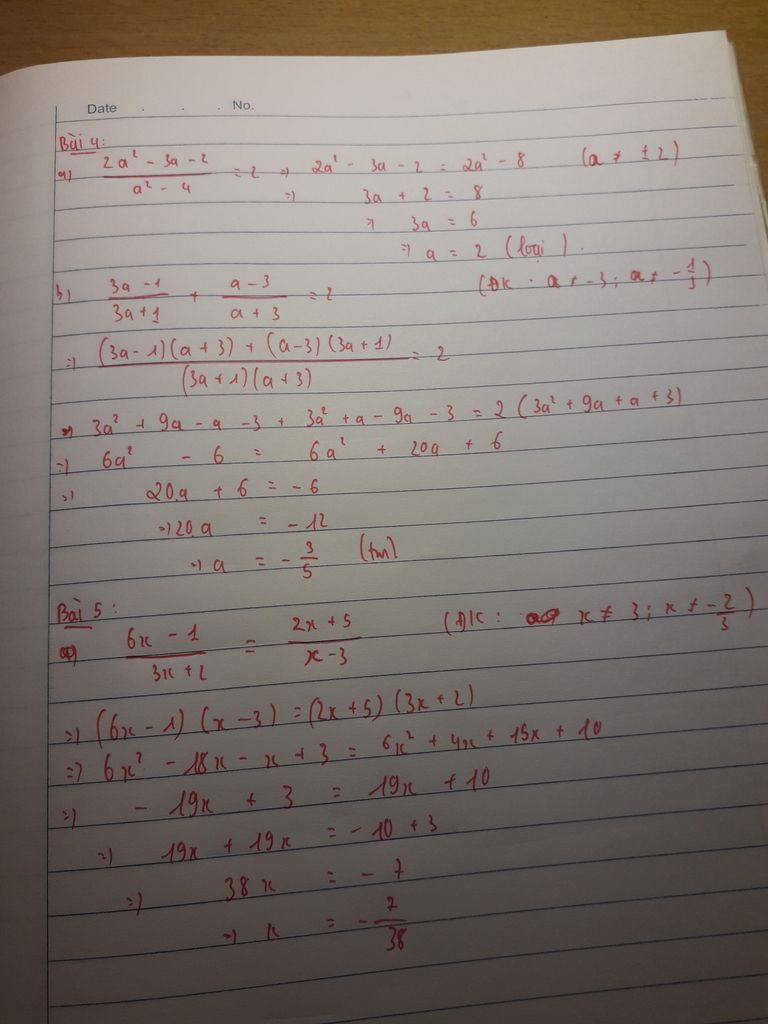 Date . . . No.
Bài 4:
a) (2a² - 3a - 2)/(a² - 4) = 2 => 2a² - 3a - 2 = 2a² - 8 (a ≠ ±2)
=> 3a + 2 = 8
=> 3a = 6
=> a = 2 (loại).
b) (3a - 1)/(3a + 1) + (a - 3)/(a + 3) = 2 (ĐK: a ≠ -3; a ≠ -1/3)
=> ((3a - 1)(a + 3) + (a - 3)(3a + 1))/((3a + 1)(a + 3)) = 2
=> 3a² + 9a - a - 3 + 3a² + a - 9a - 3 = 2(3a² + 9a + a + 3)
=> 6a² - 6 = 6a² + 20a + 6
=> 20a + 6 = -6
=> 20a = -12
=> a = -3/5 (tm)
Bài 5:
a) (6x - 1)/(3x + 2) = (2x + 5)/(x - 3) (ĐK: x ≠ 3; x ≠ -2/3)
=> (6x - 1)(x - 3) = (2x + 5)(3x + 2)
=> 6x² - 18x - x + 3 = 6x² + 4x + 15x + 10
=> - 19x + 3 = 19x + 10
=> 19x + 19x = - 10 + 3
=> 38x = - 7
=> x = - 7/38